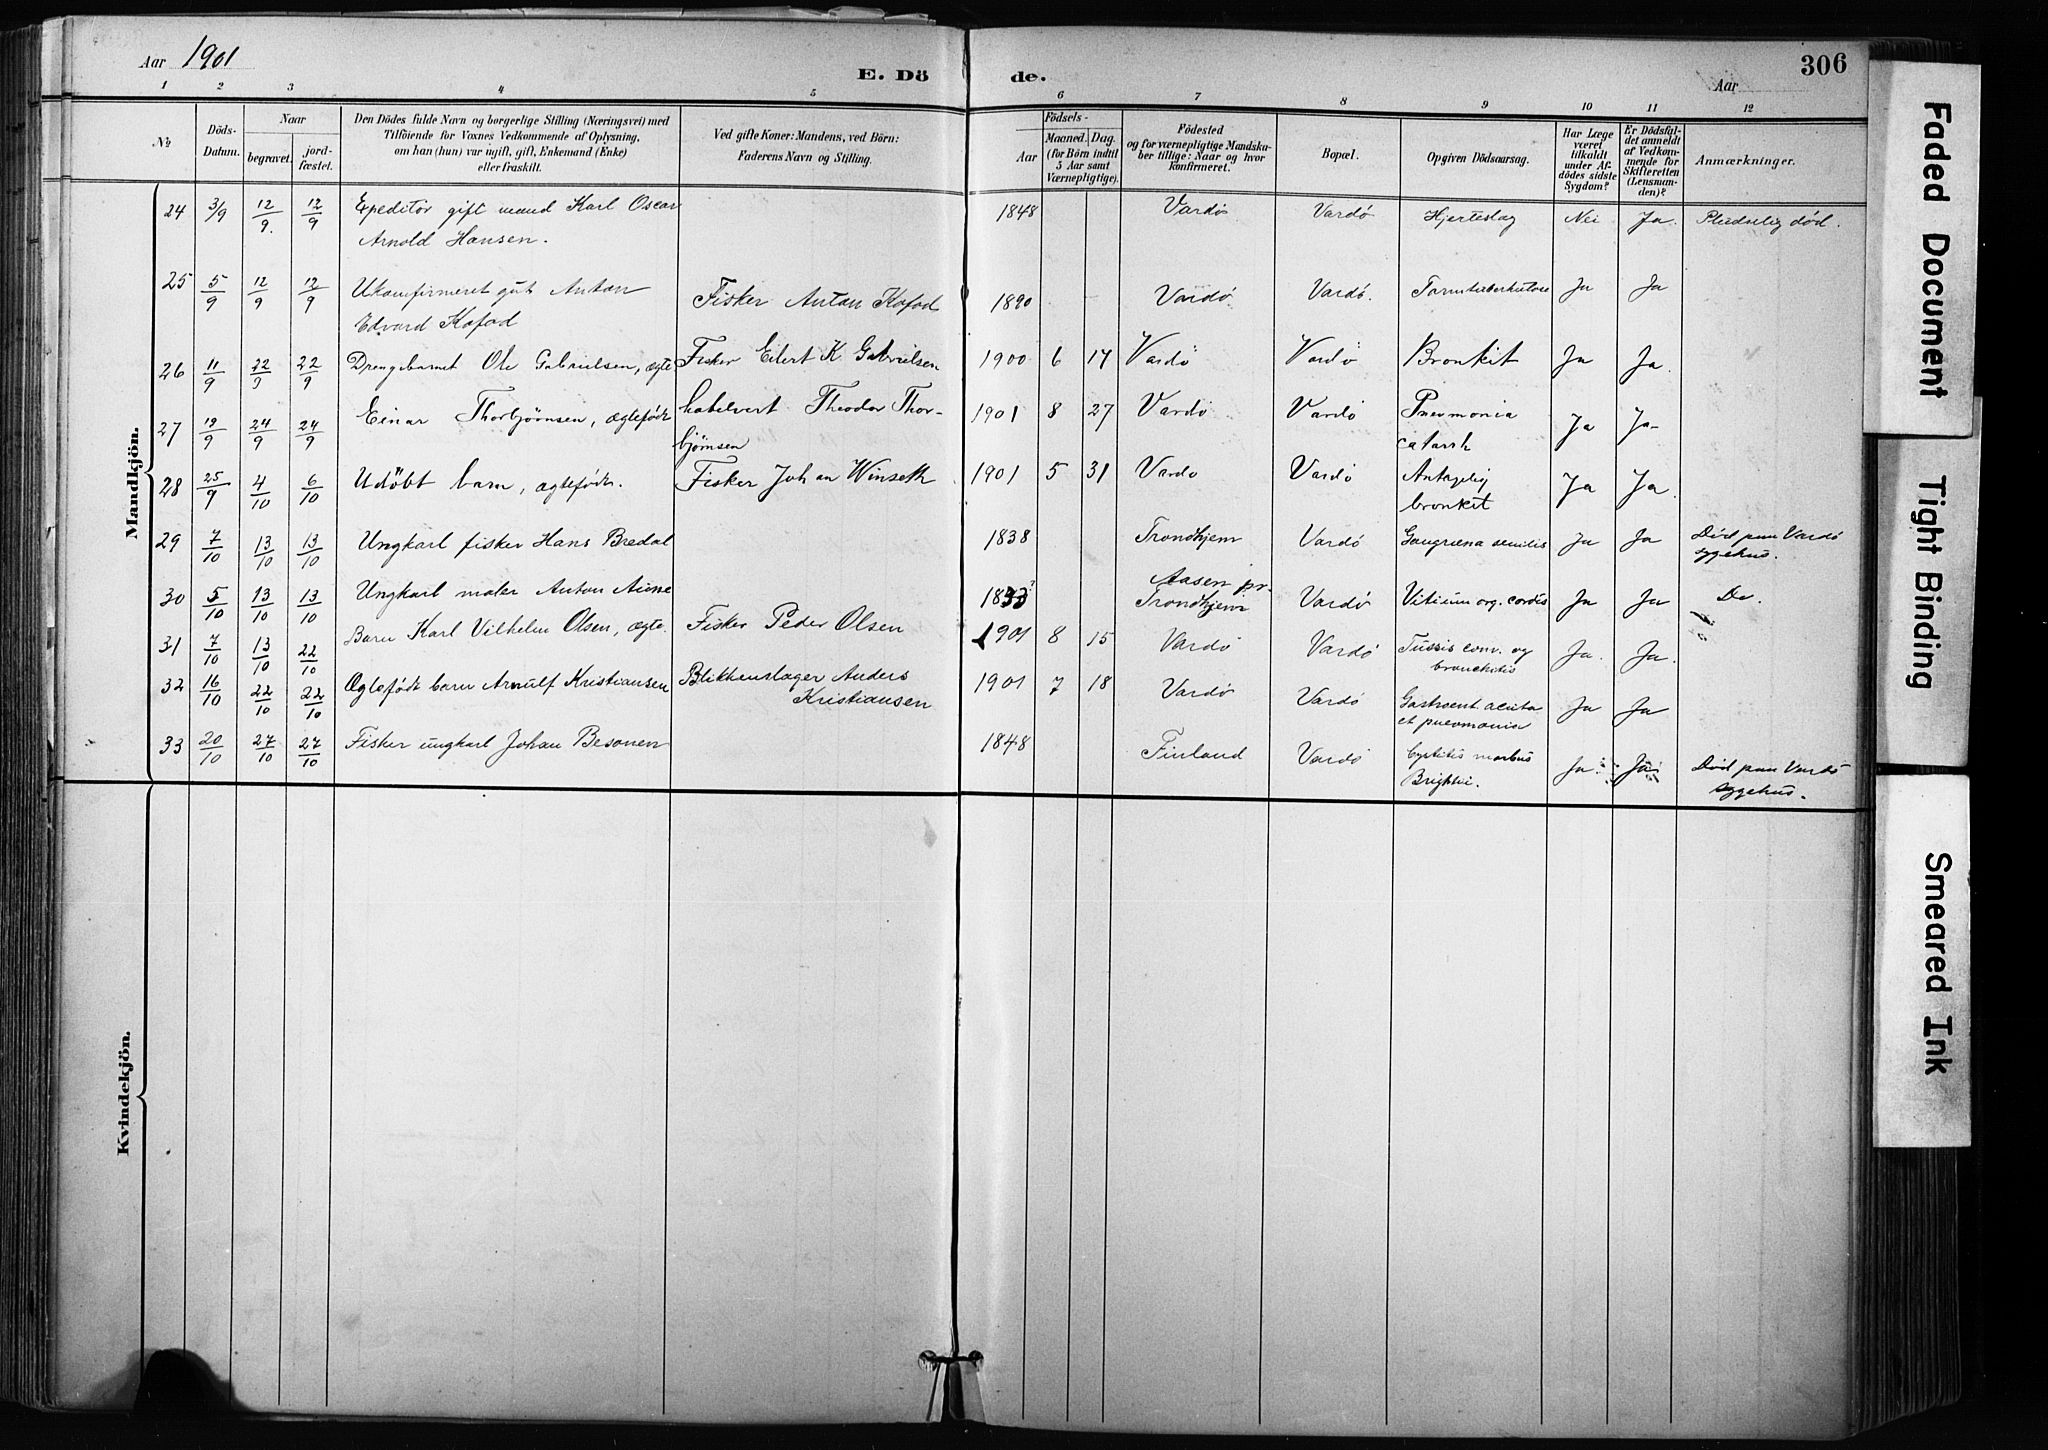 Aar 1901
E. Dö de.
Aar
306
1 2 3 4 5 6 7 8 9 10 11 12
№
Döds-Datum.
Naar
begravet.
jord-fæstet.
Den Dödes fulde Navn og borgerlige Stilling (Næringsvei) med
Tilföiende for Voxnes Vedkommende af Oplysning,
om han (hun) var ugift, gift, Enkemand (Enke)
eller fraskilt.
Ved gifte Koner: Mandens, ved Börn:
Faderens Navn og Stilling.
Födsels-
Aar
Maaned.
Dag.
(for Börn indtil
5 Aar samt
Værnepligtige).
Födested
og for værnepligtige Mandsku-
ber tillige: Naar og hvor
konfirmeret.
Bopæl.
Opgiven Dödsaarsag.
Har Læge
været
tilkaldt
under Af-
dödes sidste
Sygdom?
Er Dödsfal-
det anmeldt
af Vedkom-
mende for
Skifteretten
(Lensman-
den)?
Anmærkninger.
Mandkjön.
24 3/9 12/9. 12/9 Epeditör gift mand Karl Oscar 1848 Vardö Vardö Hjerteslag Nei Ja. Pludselig död.
Arnold Hansen.
25 5/9 12/9 12/9 Ukonfirmeret gut Anton Fisker Anton Kofod 1890 Vardö Vardö. Tarmtuberkulose Ja Ja
Edvard Kofod
26 11/9 22/9 22/9 Drengebarnet Ole Gabrielsen, ægte Fisker Eilert K Gabrielsen 1900 6 17 Vardö Vardö Bronkit Ja Ja.
27 19/9 24/9 24/9 Einar Thorbjörnsen, ægtefödt Theodor Thor- 1901 8 27 Vardö Vardö Pneumonia Ja Ja-
björnsen catarrh
28 25/9 4/10 6/10 Udöbt barn, ægtefödt. Fisker Johan Winseth 1901 5 31 Vardo Vardö Antagelig Ja Ja.
bronkit
29 7/10 13/10 13/10 Ungkarl fisker Hans Bredal 1838 Trondhjem Vardö Gangræna senilis Ja Ja Död paa Vardö
sygehus.
30 5/10 13/10 13/10 Ungkarl maler Anton Aune 1833? Aasen pr. Vardö Vitium org. cordis Ja Ja Do.
Trondhjem
31 7/10 13/10 22/10 Barn Karl Vilhelm Olsen, ægte. Fisker Peder Olsen 1901 8 15 Vardö Vardö Tussis conv. og Ja. Ja.
bronchitis
32 16/10 22/10 22/10 Ægtefödt barn Arnulf Kristiansen Blikkenslager Anders 1901 7 18 Vardö Vardö Gastroent. acuta Ja Ja
Kristiansen et pneumonia
33 20/10 27/10 27/10 Fisker ungkarl Johan Besonen 1848 Finland Vardö Cystitis morbus Ja. Ja Död paa Vardö
Brightii. sygehus.
Kvindekjön.
Faded Document
Tight Binding
Smeared Ink